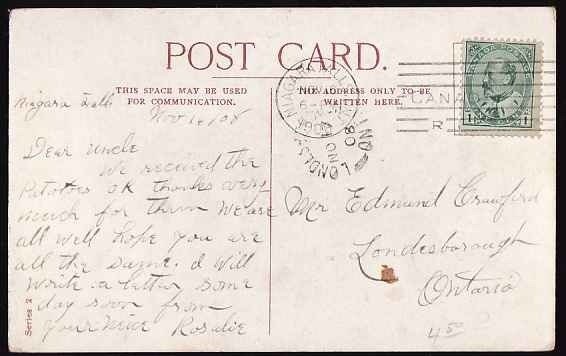 POST CARD.
THIS SPACE MAY BE USED
FOR COMMUNICATION.
THE ADDRESS ONLY TO BE
WRITTEN HERE.
Niagara Falls
Nov 08
Dear Uncle
We received the
Patotoes OK thanks very
much for them We are
all well hope you are
all the same. I will
write a letter some
day soon from
your niece Rosalie
Mr Edmund Crawford
Londesborough
Ontario
450
Series 2
NIAGARA FALLS
CANADA POSTAGE
1 1
CANA